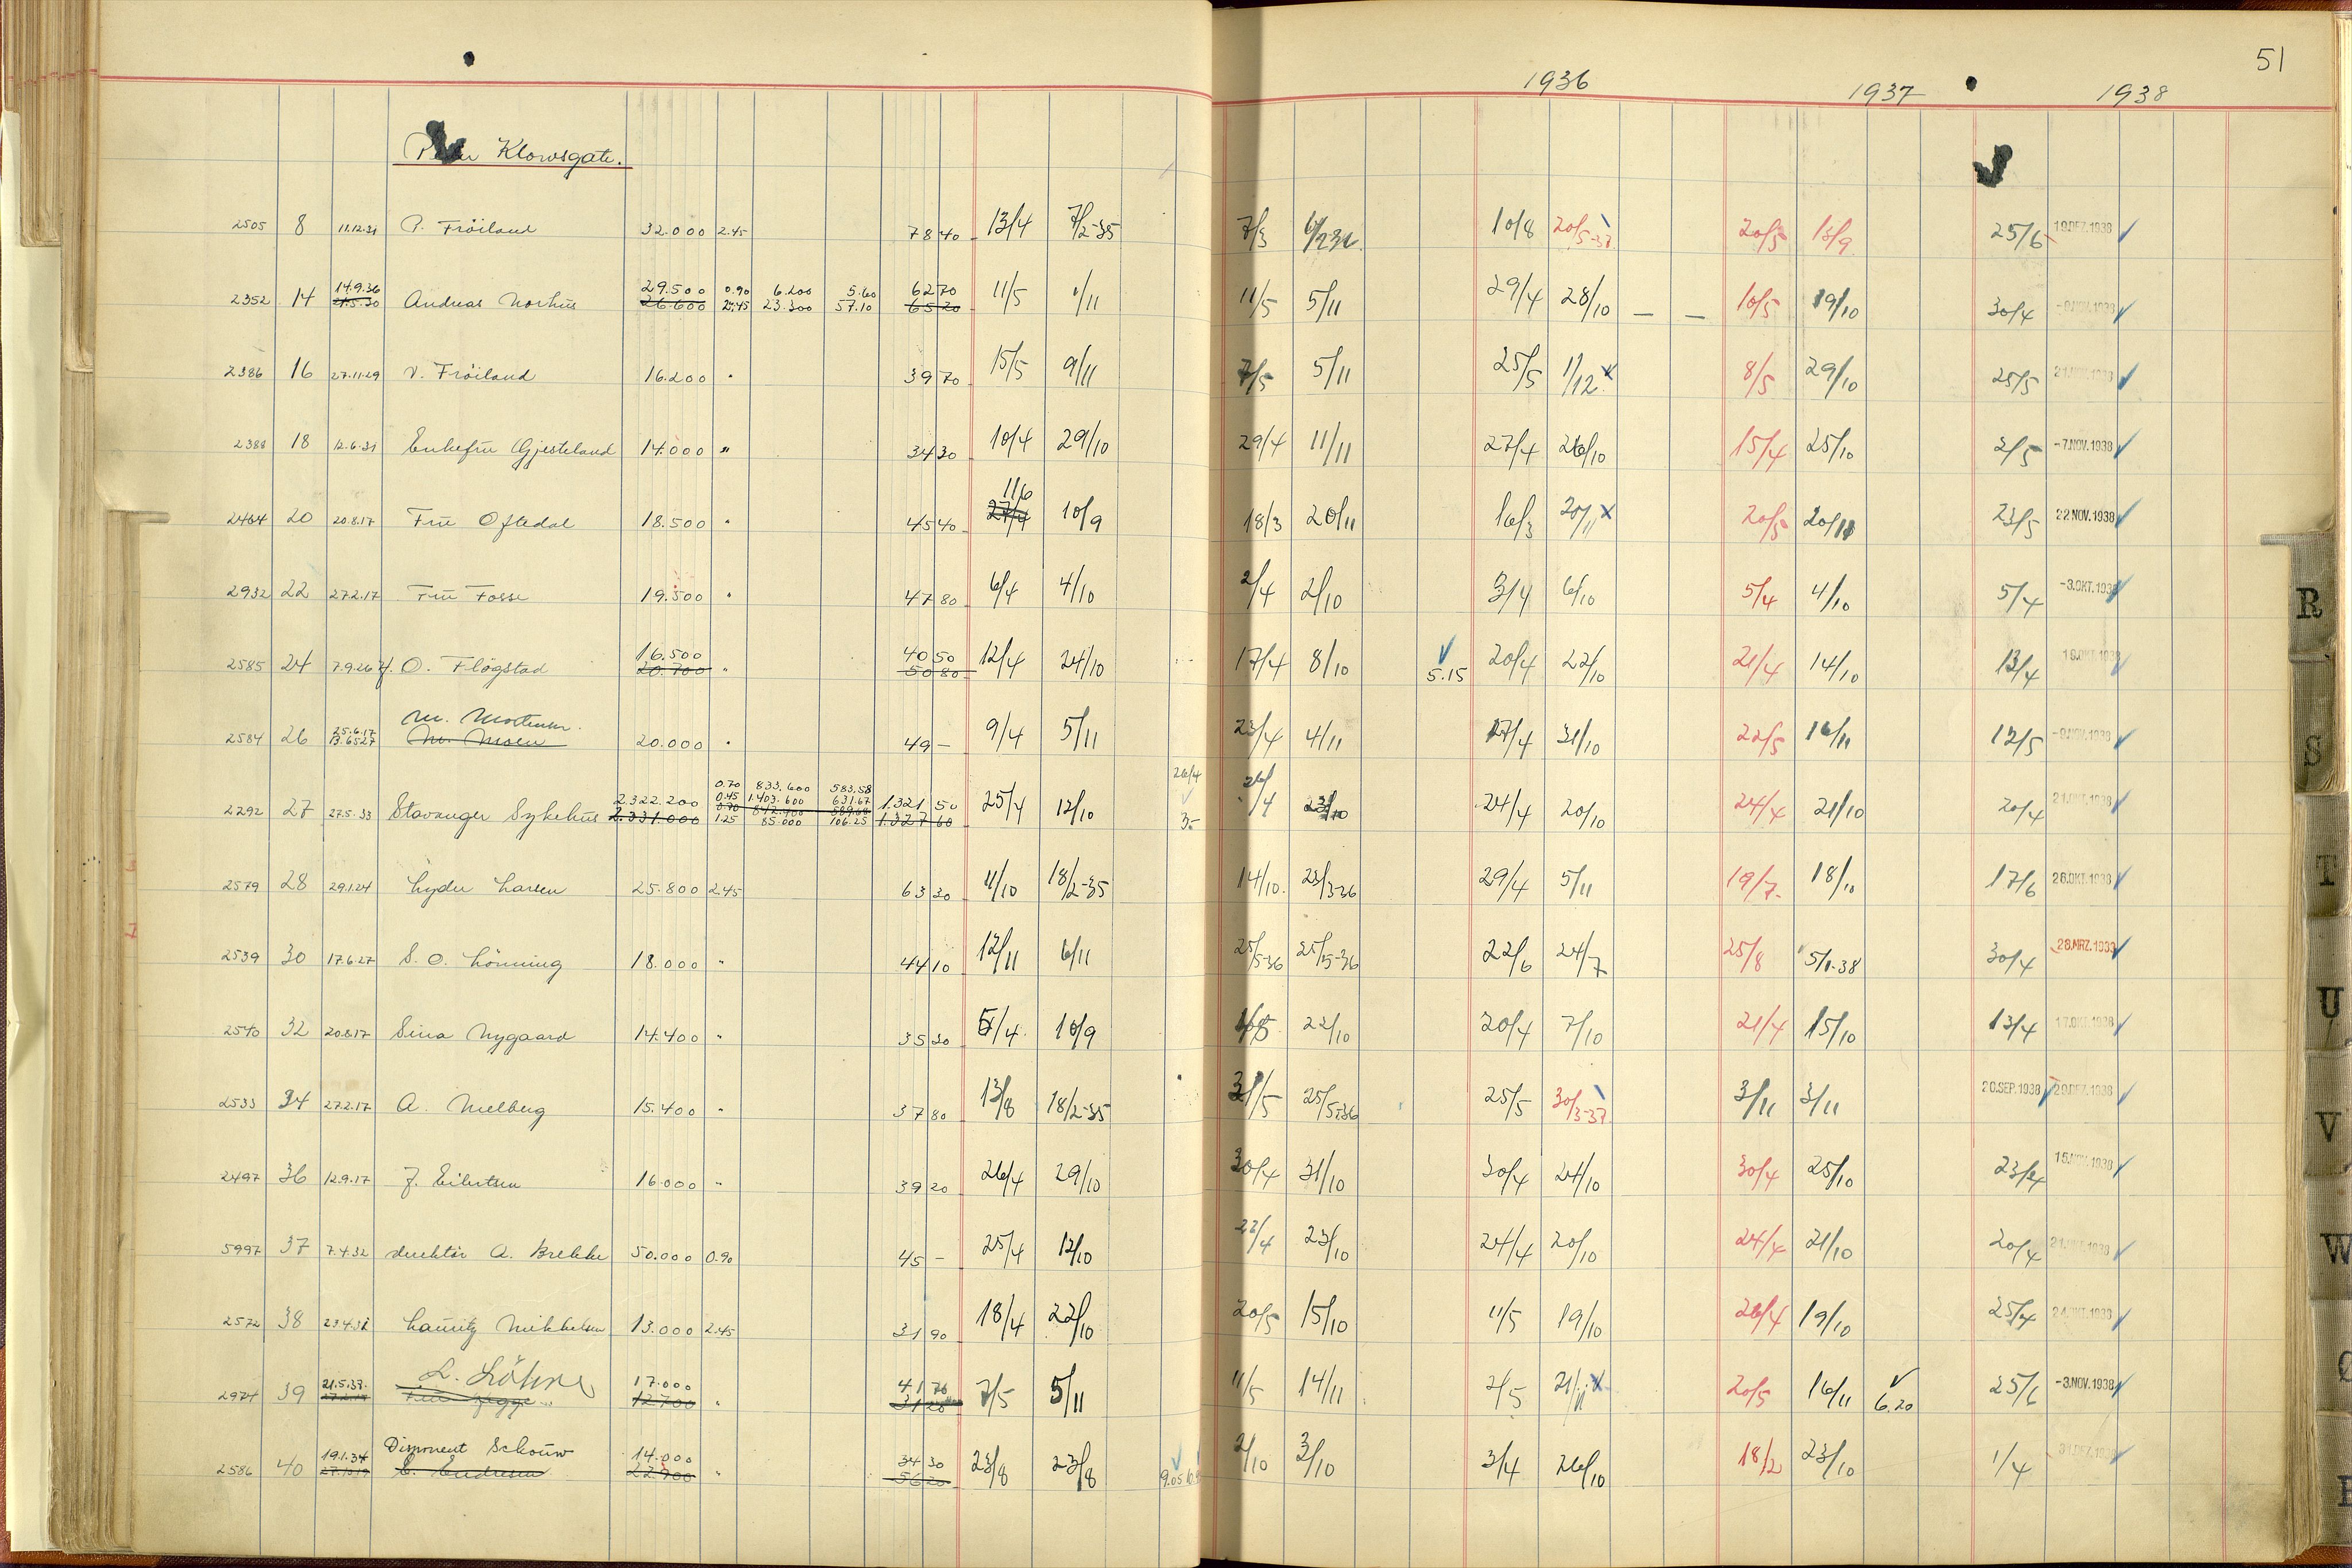 51
1936 1937 1938
Klowsgate.
2505 8 11.12.31 P. Fröiland 32.000 2.45 78 40 13/4 7/2-35 7/3 10/8 20/5-37 20/5 13/9 25/6 19.DEZ.1938
14.9.36 29.500 0.90 6.200 5.60 62 70
2352 14 Andreas Norhus 26.600 2.45 23.300 57.10 65 20 11/5 1/11 11/5 5/11 29/4 28/10 — — 10/5 19/10 30/4 -9.NOV.1938
2386 16 27.11.29 V. Fröiland 16.200 " 39 70 15/5 9/11 7/5 5/11 25/5 1/12 x 8/5 29/10 25/5 21.NOV.1938
2388 18 12.6.31 Enkefru Gjesteland 14.000 " 34 30 10/4 29/10 29/4 11/11 27/4 26/10 15/4 25/10 2/5 -7.NOV.1938
11/6
2464 20 20.8.17 Fru Oftedal 18.500 " 45 40 27/4 10/9 18/3 20/11 16/3 20/11 x 20/5 20/11 23/5 22 NOV.1938
2932 22 27.2.17 Fru Fosse 19.500 " 47 80 6/4 4/10 2/4 2/10 3/4 6/10 5/4 4/10 5/4 -3.OKT.1938
16.500 40 50
2585 24 7.9.26 O. Flögstad 20.700 " 50 80 12/4 24/10 17/4 8/10 5.15 20/4 22/10 21/4 14/10 13/4 19.OKT.1938
25.6.17 M. Mortensen.
2584 26 M. Moen 20.000 " 49 — 9/4 5/11 23/4 4/11 17/4 31/10 22/5 16/11 12/5 -9.NOV.1938
0.70 833.600 583.58 26/4
2.322.200 0.45 1.403.600 631.67 1.321 50
2292 27 27.5.33 Stavanger Sykehus 2.331.000 0.70 842.400 589.68 1.327 60 25/4 12/10 26/4 23/10 24/4 20/10 24/4 21/10 20/4 21.OKT.1938
1.25 85.000 106.25 3.-
2579 28 29.1.24 Lyder Larsen 25.800 2.45 63 30 11/10 18/2-35 14/10. 23/3-36 29/4 5/11 19/7- 18/10 17/6 26.OKT.1938
2539 30 17.6.27 S. O. Lönning 18.000 " 44 10 12/11 6/11 25/5-36 25/5-36 22/6 24/7 25/8 5/1-38 30/4 28.MRZ.1939
2540 32 20.8.17 Sina Nygaard 14.400 " 35 30 5/4 10/9 22/10 20/4 7/10 21/4 15/10 13/4 17.OKT.1938
2533 34 27.2.17 A. Melberg 15.400 " 37 80 13/8 18/2-35 31/5 25/5-36 25/5 30/3-37 3/11 3/11 20.SEP.1938 20.DEZ.1938
2497 36 12.9.17 J. Eilertsen 16.000 " 39 20 26/4 29/10 30/4 31/10 30/4 24/10 30/4 25/10 15.NOV.1938
5997 37 7.4.32 direktör A. Brekke 50.000 0.90 45 — 25/4 12/10 23/10 24/4 20/10 24/4 21/10 20/4 21.OKT.1938
2572 38 Lauritz Mikkelsen 13.000 2.45 31 90 18/4 22/10 20/5 15/10 11/5 19/10 28/4 19/10 25/4 24.OKT.1938
21.5.37. L. Löhne 17.000 41 70
2974 39 Fru 12.700 " 31 20 7/5 5/11 11/5 14/11 2/5 21/11 x 20/5 16/11 6.20 25/6 -3.NOV.1938
19.1.34 Disponent Schouw 14.000 34 30
2586 40 27.10.19 E. Endresen 22.900 " 56 20 23/8 23/8 9.05 2/10 3/10 3/4 26/10 18/2 23/10 1/4 31.DEZ.1938
R
S
T
U
V
W